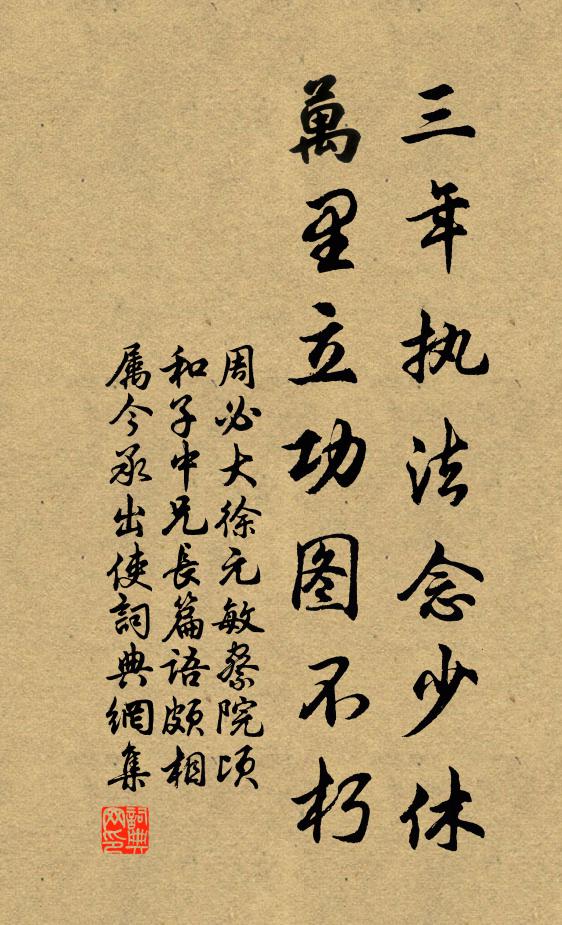 三年执法念少休
萬里立功图不朽
周必大徐元敏察院顷
和子中兄長篇语颇相
属今承出使詞典網集
詞典网印